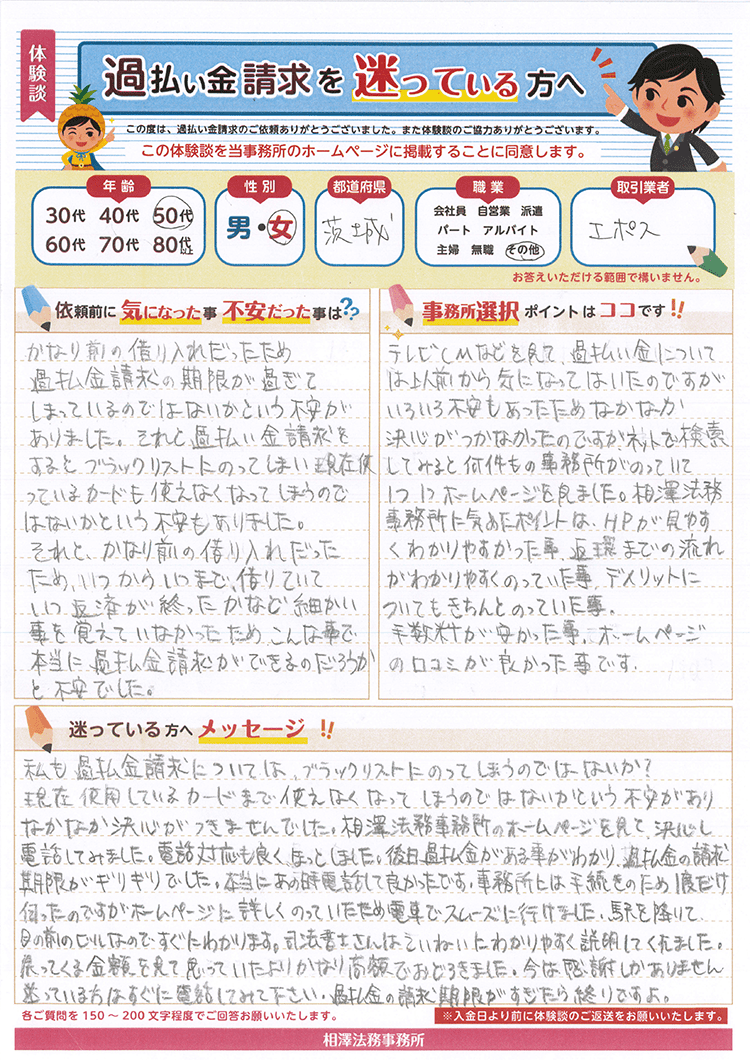 体験談
過払い金請求を迷っている方へ
この度は、過払い金請求のご依頼ありがとうございました。また体験談のご協力ありがとうございます。
この体験談を当事務所のホームページに掲載することに同意します。
年齢 性別 都道府県 職業 取引業者
30代 40代 50代
60代 70代 80代以上
男・女
茨城
会社員 自営業 派遣
パート アルバイト
主婦 無職 その他
エポス
お答えいただける範囲で構いません。
依頼前に気になった事不安だった事は??
かなり前の借り入れだったため
過払金請求の期限が過ぎて
しまっているのではないかという不安が
ありました。それと過払い金請求を
するとブラックリストにのってしまい現在使
っているカードも使えなくなってしまうので
はないかという不安もありました。
それと、かなり前の借り入れだった
ため、いつからいつまで、借りていて
いつ返済が終ったかなど細かい
事を覚えていなかったため、こんな事で
本当に過払金請求ができるのだろうか
と不安でした。
事務所選択ポイントはココです!!
テレビCMなどを見て、過払い金について
は以前から気になってはいたのですが
いろいろ不安もあったためなかなか
決心がつかなかったのですが、ネットで検索
してみると何件もの事務所がのっていて
1つ1つホームページを見ました。相澤法務
事務所に決めたポイントは、HPが見やす
くわかりやすかった事、返還までの流れ
がわかりやすくのっていた事、デメリットに
ついてもきちんとのっていた事。
手数料が安かった事、ホームページ
の口コミが良かった事です。
迷っている方へメッセージ!!
私も過払金請求については、ブラックリストにのってしまうのではないか?
現在使用しているカードまで使えなくなってしまうのではないかという不安があり
なかなか決心がつきませんでした。相澤法務事務所のホームページを見て、決心し
電話してみました。電話対応も良く、ほっとしました。後日過払金がある事がわかり、過払金の請求
期限がギリギリでした。本当にあの時電話して良かったです。事務所には手続きのため1度だけ
伺ったのですがホームページに詳しくのっていたため電車でスムーズに行けました。駅を降りて
目の前のビルなのですぐにわかります。司法書士さんはていねいにわかりやすく説明してくれました。
戻ってくる金額を見て思っていたよりかなり高額でおどろきました。今は感謝しかありません
迷っている方はすぐに電話してみて下さい。過払金の請求期限がすぎたら終りですよ。
各ご質問を150～200文字程度でご回答お願いいたします。
※入金日より前に体験談のご返送をお願いいたします。
相澤法務事務所